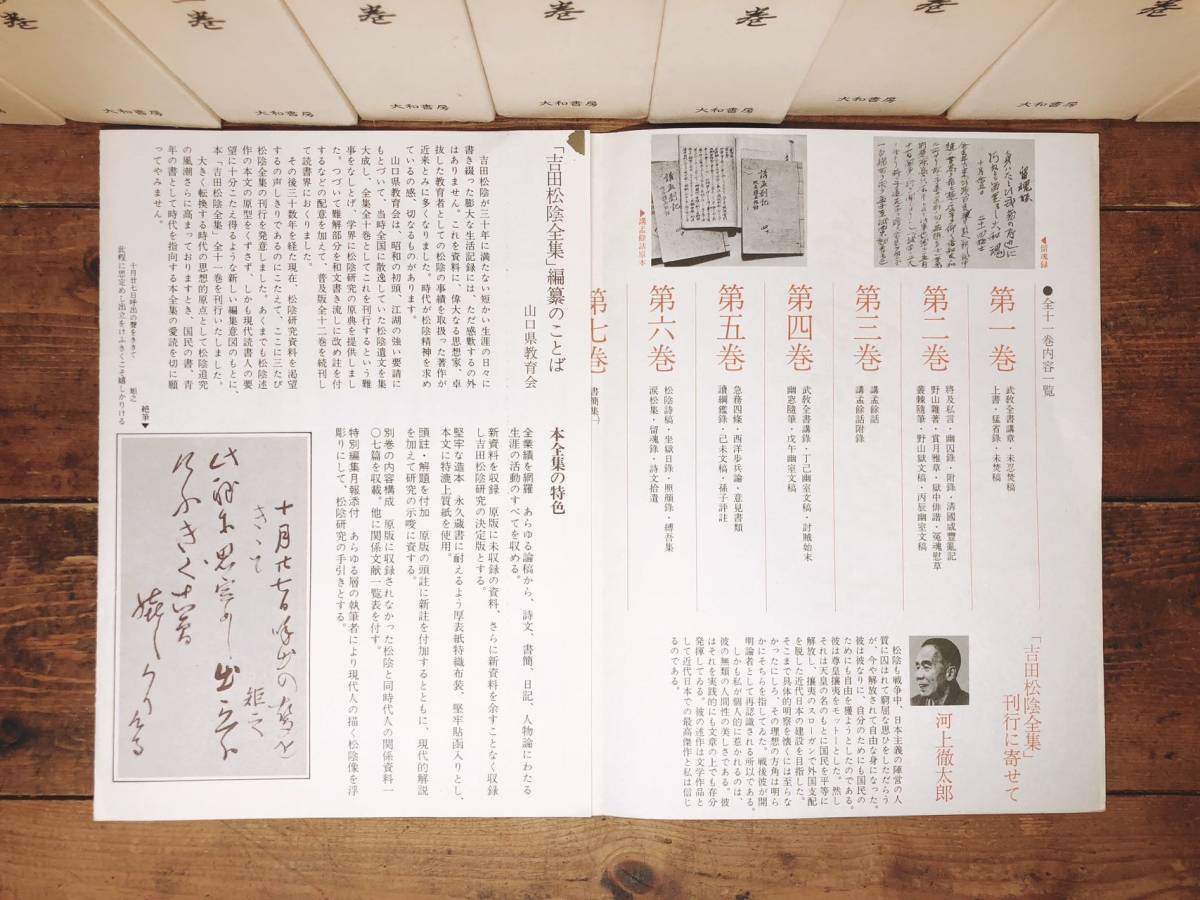 巻
巻
巻
巻
巻
巻
巻
大和書房
大和書房
大和書房
大和書房
大和書房
大和書房
大和書房
◀留魂録
▶講孟餘話原本
●全十一巻内容一覧
第一巻
武教全書講章・未忍焚稿
上書・猛省錄・未焚稿
第二巻
將及私言・幽囚錄・附錄・清國咸豐亂記
野山雜著・賞月雅草・獄中俳諧・冤魂慰草
叢棘隨筆・野山獄文稿・丙辰幽室文稿
第三巻
講孟餘話
講孟餘話附錄
第四巻
武教全書講錄・丁己幽室文稿・討賊始末
幽窓隨筆・戊午幽室文稿
第五巻
急務四條・西洋步兵論・意見書類
讀綱鑑錄・己未文稿・孫子評註
第六巻
松陰詩稿・坐獄日錄・照顏錄・縛吾集
涙松集・留魂錄・詩文拾遺
第七巻
書簡集(一)
「吉田松陰全集」
刊行に寄せて
河上徹太郎
松陰も戦争中、日本主義の陣営の人
質に囚はれて窮屈な思ひをしただらう
が、今や解放されて自由な身になった。
彼は彼なりに、自分のためにも国民の
ためにも自由を獲ようとしたのである。
彼は尊皇攘夷をモットーとした。然し
それは天皇の名のもとに国民を平等に
解放し、攘夷のスローガンで外国支配
を脱した近代日本の建設を目指した。
そこまで具体的明察を懐くには至らな
かったにしろ、その理想の方角は明ら
かにそちらを指してゐた。戦後彼が開
明論者として再認識される所以である。
しかも私が個人的に惹かれるのは、
彼の無類の人間性の美しさである。彼
はそれを実践的にも文章の上でも存分
発揮してゐる。彼の述作は文学作品と
して近代日本での最高傑作と私は信じ
るのである。
「吉田松陰全集」編纂のことば
山口県教育会
吉田松陰が三十年に満たない短かい生涯の日々に
書き綴った膨大な生活記録には、ただ感歎するの外
はありません。これを資料に、偉大なる思想家、卓
抜した教育者としての松陰の事績を取扱った著作が
近来とみに多くなりました。時代が松陰精神を求め
ているの感、切なるものがあります。
山口県教育会は、昭和の初頭、江湖の強い要請に
もとづいて、当時全国に散逸していた松陰遺文を集
大成し、全集全十巻としてこれを刊行するという難
事をなしとげ、学界に松陰研究の原典を提供しまし
た。つづいて難解部分を和文書き流しに改め註を付
するなどの配意を加えて、普及版全十二巻を続刊し
て読書界におくりました。
その後三十数年を経た現在、松陰研究資料を渇望
するの声しきりであるのにこたえて、ここに三たび
松陰全集の刊行を発意しました。あくまでも松陰述
作の本文の原型をくずさず、しかも現代読書人の要
望に十分こたえ得るような新しい編集意図のもとに、
本「吉田松陰全集」全十一巻を刊行いたしました。
大きく転換する時代の思想的原点として松陰追究
の風潮さらに高まっておりますとき、国民の書、青
年の書として時代を指向する本全集の愛読を切に願
ってやみません。
十月廿七日呼出の聲をききて　矩之
此程に思定めし出立をけふきくこそ嬉しかりける
絶筆▼
本全集の特色
全業績を網羅　あらゆる論稿から、詩文、書簡、日記、人物論にわたる
生涯の活動のすべてを収める。
新資料を収録　原版に未収録の資料、さらに新資料を余すことなく収録
し吉田松陰研究の決定版とする。
堅牢な造本　永久蔵書に耐えるよう厚表紙特織布装、堅牢貼函入りとし、
本文に特漉上質紙を使用。
頭註・解題を付加　原版の頭註に新註を付加するとともに、現代的解説
を加えて研究の示唆に資する。
別巻の内容構成　原版に収録されなかった松陰と同時代人の関係資料一
〇七篇を収載。他に関係文献一覧表を付す。
特別編集月報添付　あらゆる層の執筆者により現代人の描く松陰像を浮
彫りにして、松陰研究の手引きとする。